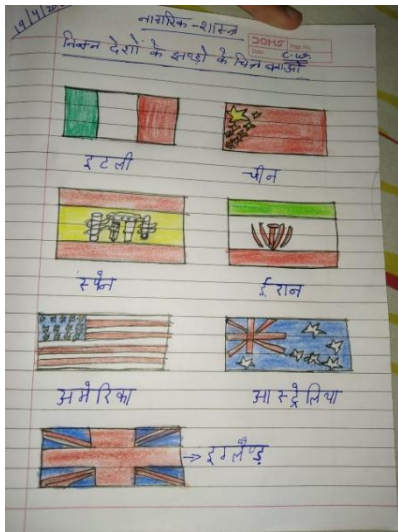 नागरिक-शास्त्र
DOMS
Page No.
Date
C.W.
निम्न देशों के झण्डो के चित्र बनाओ
इटली
चीन
स्पेन
ईरान
अमेरिका
आस्ट्रेलिया
→ इंग्लैण्ड